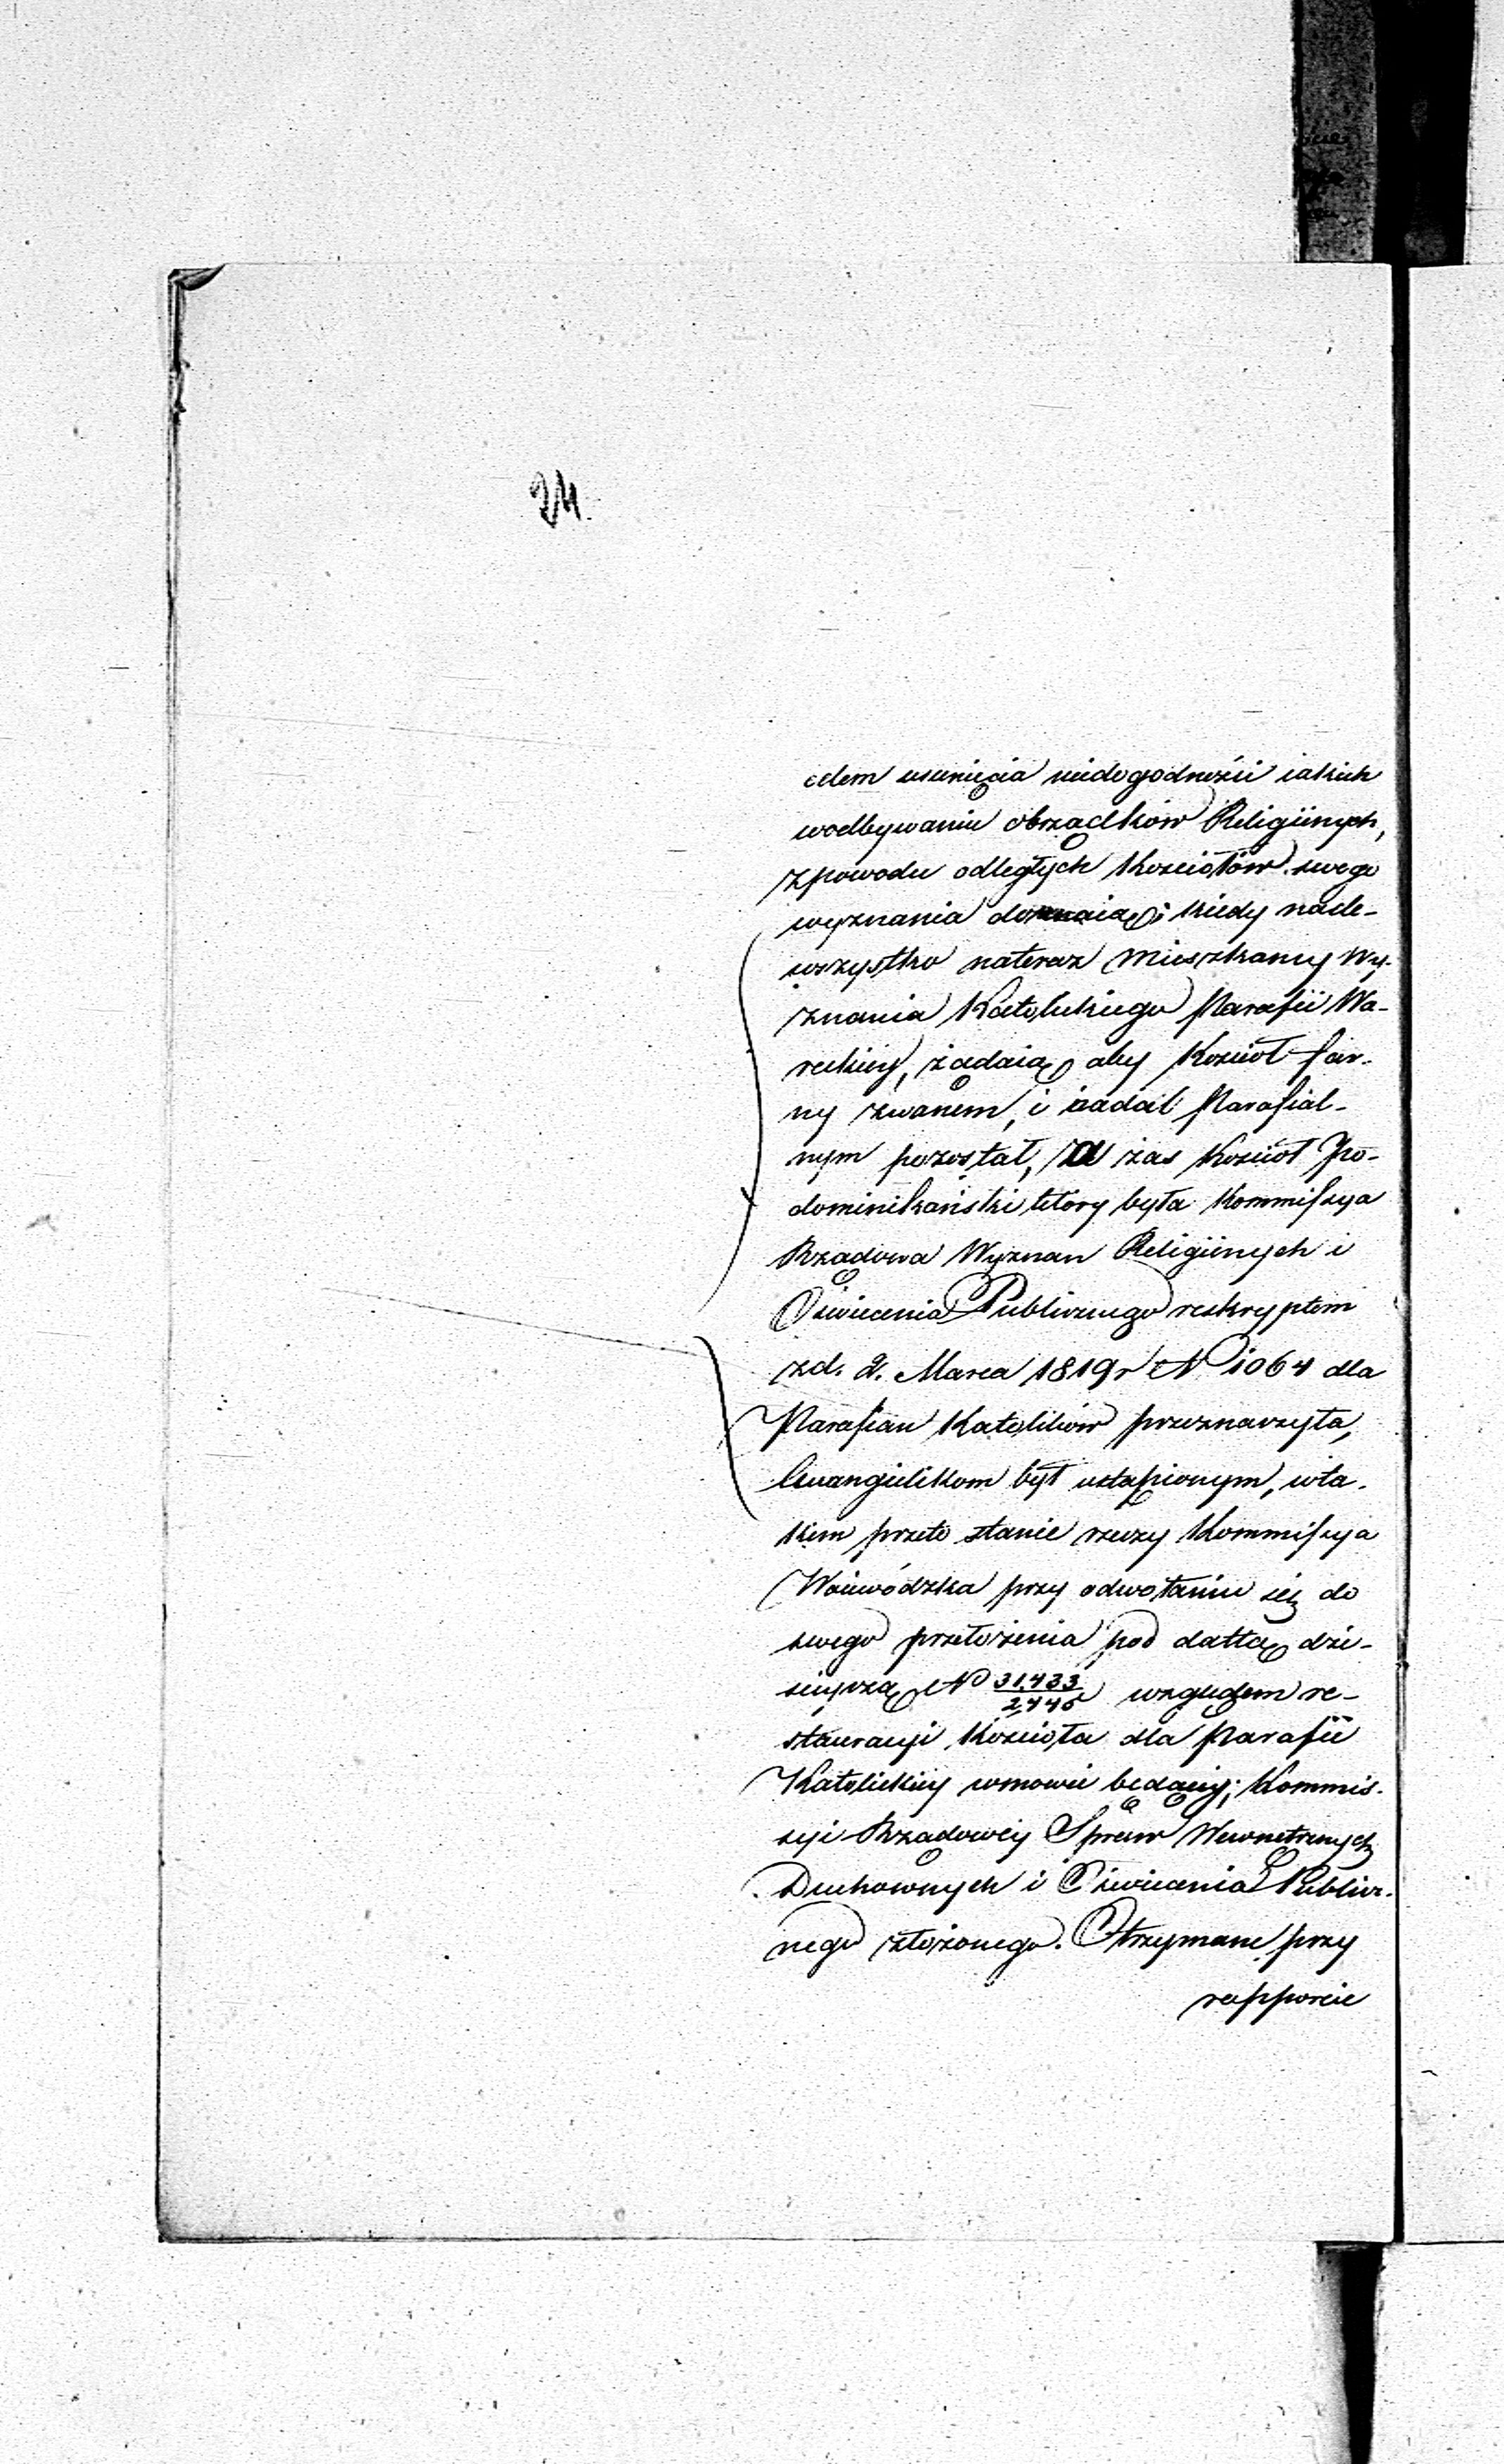 24.
celem usunięcia niedogodności iakich
wodbywaniu obrządków Religiinych,
zpowodu odległych Kościołów swego
wyznania doznaią; kiedy nade-
wszystko nateraz Mieszkańcy Wy-
znania Katolickiego Parafii Wa-
reckiey, żądaią aby Kościoł far-
ny zwanem, i nadal Parafial-
nym pozostał, zaś Kościoł Po-
dominikański który była Kommissya
Rządowa Wyznan Religiinych i
Oświecenia Publicznego reskryptem
zd. 2. Marca 1819 r N 1064 dla
Parafian Katolików przeznaczyła,
Ewangielikom był ustąpionym, wta-
kim przeto stanie rzeczy Kommissya
Woiewódzka przy odwołaniu się do
swego przełożenia pod dattą dzi-
sieyszą N 31,433/2,445 względem re-
stauracyi Kościoła dla Parafii
Katolickiey wmowie będącey; Kommis-
syi Rządowéy Spraw Wewnętrznych
Duchownych i Oświecenia Publicz-
nego złożonego. Otrzymane przy
rapporcie